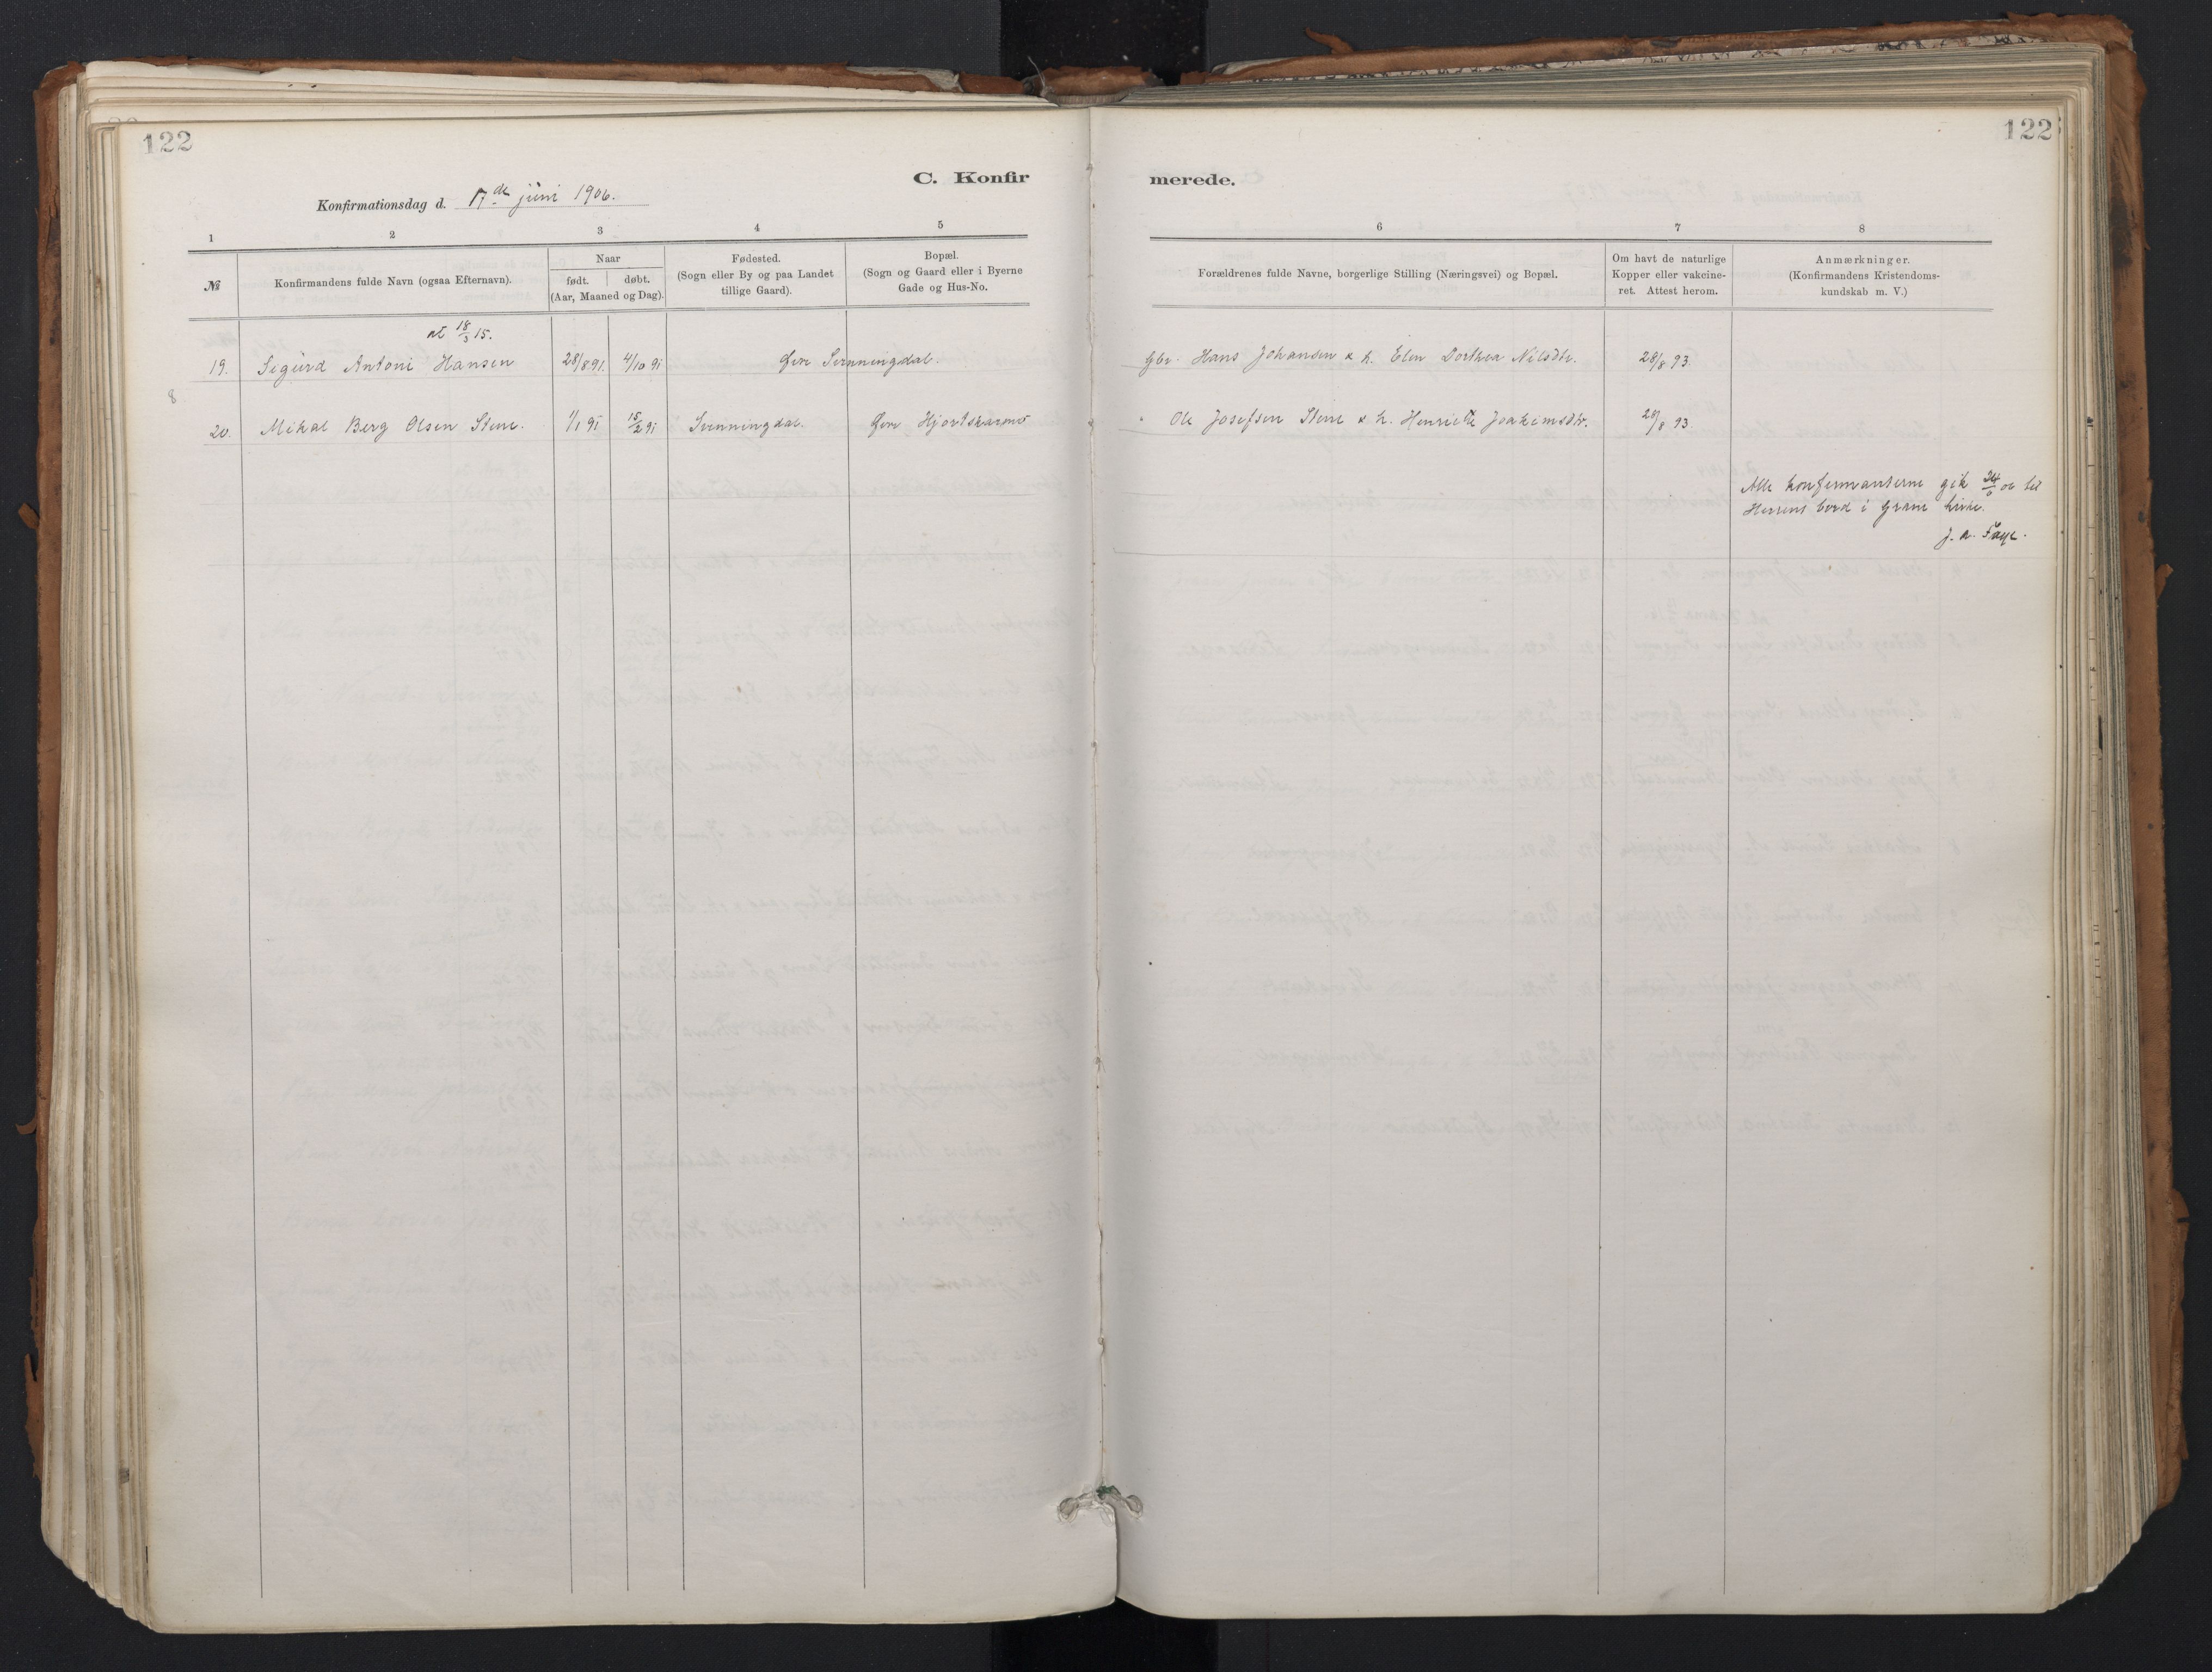 122
C. Konfir
Konfirmationsdag d. 17de juni 1906.
1 2 3 4 5
№
Konfirmandens fulde Navn (ogsaa Efternavn).
Naar
født. døbt.
(Aar, Maaned og Dag).
Fødested.
(Sogn eller By og paa Landet
tillige Gaard).
Bopæl.
(Sogn og Gaard eller i Byerne
Gade og Hus-No.
18/3 15.
19. Sigurd Antoni Hansen 28/8 91. 4/10 91 Øvre Svenningdal.
8
20. Mikal Berg Olsen Stene. 1/1 91 15/2 91 Svenningdal. Øvre Hjortskarmo
122
merede.
6 7 8
Forældrenes fulde Navne, borgerlige Stilling (Næringsvei) og Bopæl.
Om havt de naturlige
Kopper eller vakcine-
ret. Attest herom.
Anmærkninger.
(Konfirmandens Kristendoms-
kundskab m. V.)
Gbr. Hans Johansen & h. Elen Dorthea Nilsdtr. 28/8 93.
" Ole Josefsen Stene & h. Henriette Joakimsdtr. 28/8 93.
Alle konfirmanterne gik 24/6 06 til
Herrens bord i Grane kirke.
J. A. Faye.